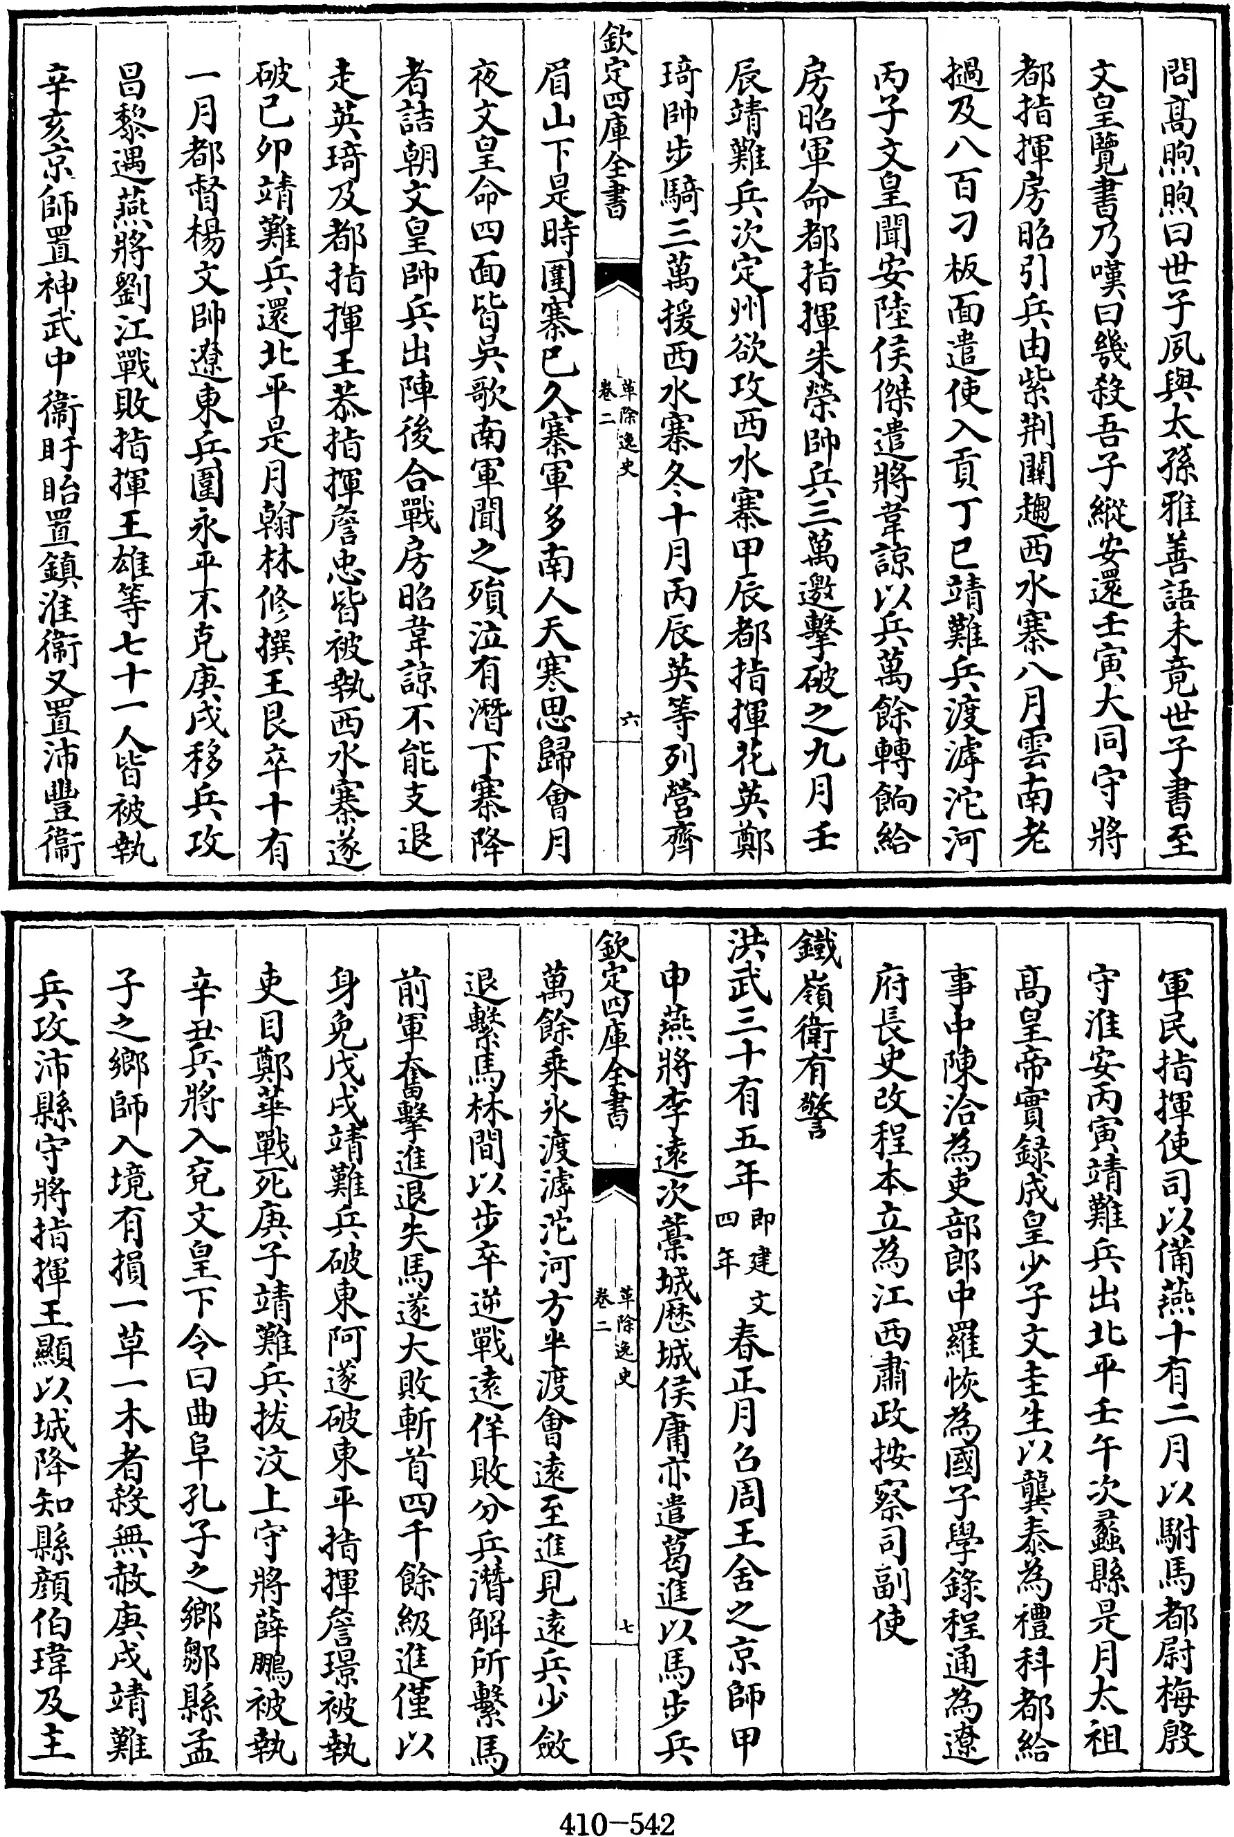 問高煦煦曰世子夙與太孫雅善語未竟世子書至
文皇覽書乃嘆曰幾殺吾子縱安還壬寅大同守將
都指揮房昭引兵由紫荆關趨西水寨八月雲南老
撾及八百刁板面遣使入貢丁巳靖難兵渡滹沱河
丙子文皇聞安陸侯傑遣將韋諒以兵萬餘轉餉給
房昭軍命都指揮朱榮帥兵三萬邀擊破之九月壬
辰靖難兵次定州欲攻西水寨甲辰都指揮花英鄭
琦帥步騎三萬援西水寨冬十月丙辰英等列營齊
欽定四庫全書
革除逸史
卷二
六
眉山下是時圍寨已久寨軍多南人天寒思歸會月
夜文皇命四面皆吳歌南軍聞之殞泣有潛下寨降
者詰朝文皇帥兵出陣後合戰房昭韋諒不能支退
走英琦及都指揮王恭指揮詹忠皆被執西水寨遂
破已卯靖難兵還北平是月翰林修撰王艮卒十有
一月都督楊文帥遼東兵圍永平不克庚戌移兵攻
昌黎遇燕將劉江戰敗指揮王雄等七十一人皆被執
辛亥京師置神武中衞盱眙置鎮淮衞又置沛豐衞
軍民指揮使司以備燕十有二月以駙馬都尉梅殷
守淮安丙寅靖難兵出北平壬午次蠡縣是月太祖
高皇帝實録成皇少子文圭生以龔泰為禮科都給
事中陳洽為吏部郎中羅恢為國子學錄程通為遼
府長史改程本立為江西肅政按察司副使
鐵嶺衛有警
洪武三十有五年即建文四年春正月召周王舍之京師甲
申燕將李遠次藁城歷城侯庸亦遣葛進以馬步兵
欽定四庫全書
革除逸史
卷二
七
萬餘乘氷渡滹沱河方半渡會遠至進見遠兵少斂
退繫馬林間以步卒逆戰遠佯敗分兵潛解所繫馬
前軍奮擊進退失馬遂大敗斬首四千餘級進僅以
身免戊戌靖難兵破東阿遂破東平指揮詹璟被執
吏目鄭華戰死庚子靖難兵拔汶上守將薛鵬被執
辛丑兵將入兗文皇下令曰曲阜孔子之鄉鄒縣孟
子之鄉師入境有損一草一木者殺無赦庚戌靖難
兵攻沛縣守將指揮王顯以城降知縣顏伯瑋及主
410-542